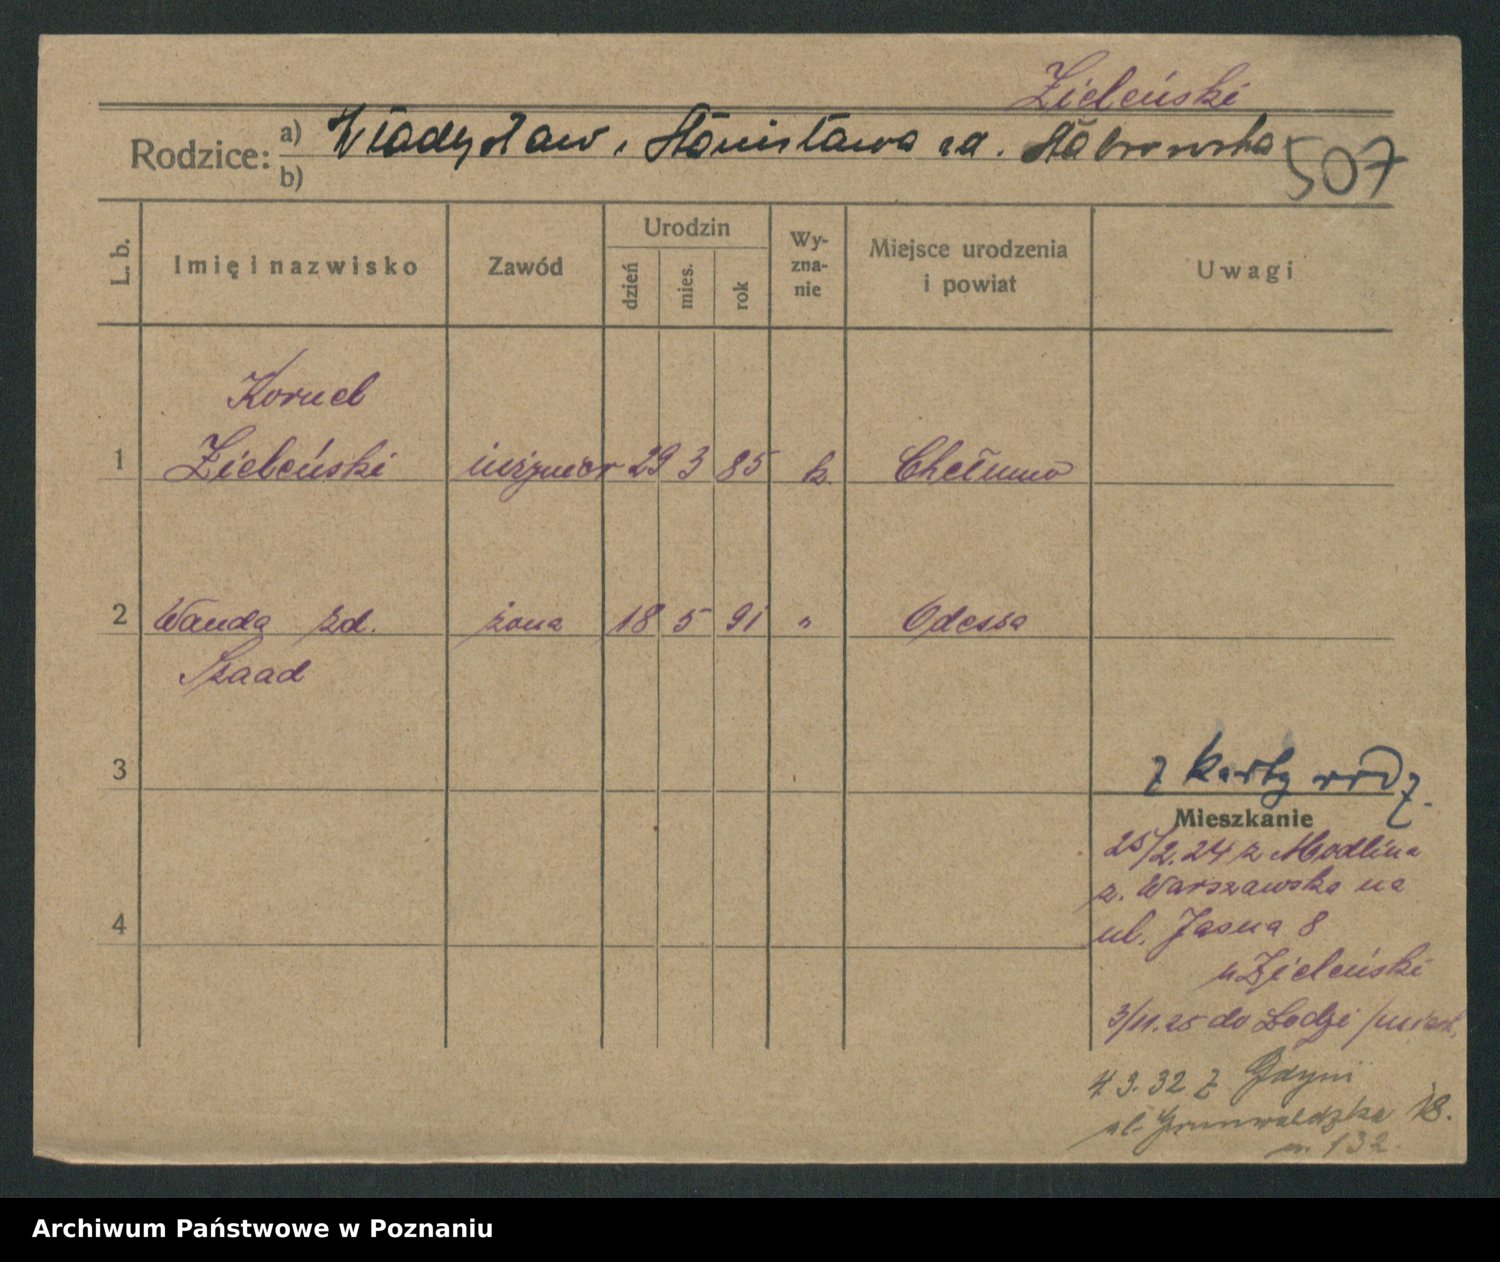 Zieleński
Rodzice: a) Władysław i Stanisława zd. Dąbrowska
b)
507
L. b. Imię i nazwisko Zawód Urodzin dzień mies. rok Wy-zna-nie Miejsce urodzenia i powiat Uwagi
Kornel
1 Zieleński inżynier 29 3 85 k. Chełmno
2 Wanda zd. żona 18 5 91 " Odessa
Szaad
3
z karty
Mieszkanie
25/2.24 z Modlina
p. Warszawska na
4
ul. Jasna 8
u Zieleński
3/11.25 do Łodzi /miast.
4 3. 32 z Gdyni
ul. Grunwaldzka 18.
m. 132.
Archiwum Państwowe w Poznaniu